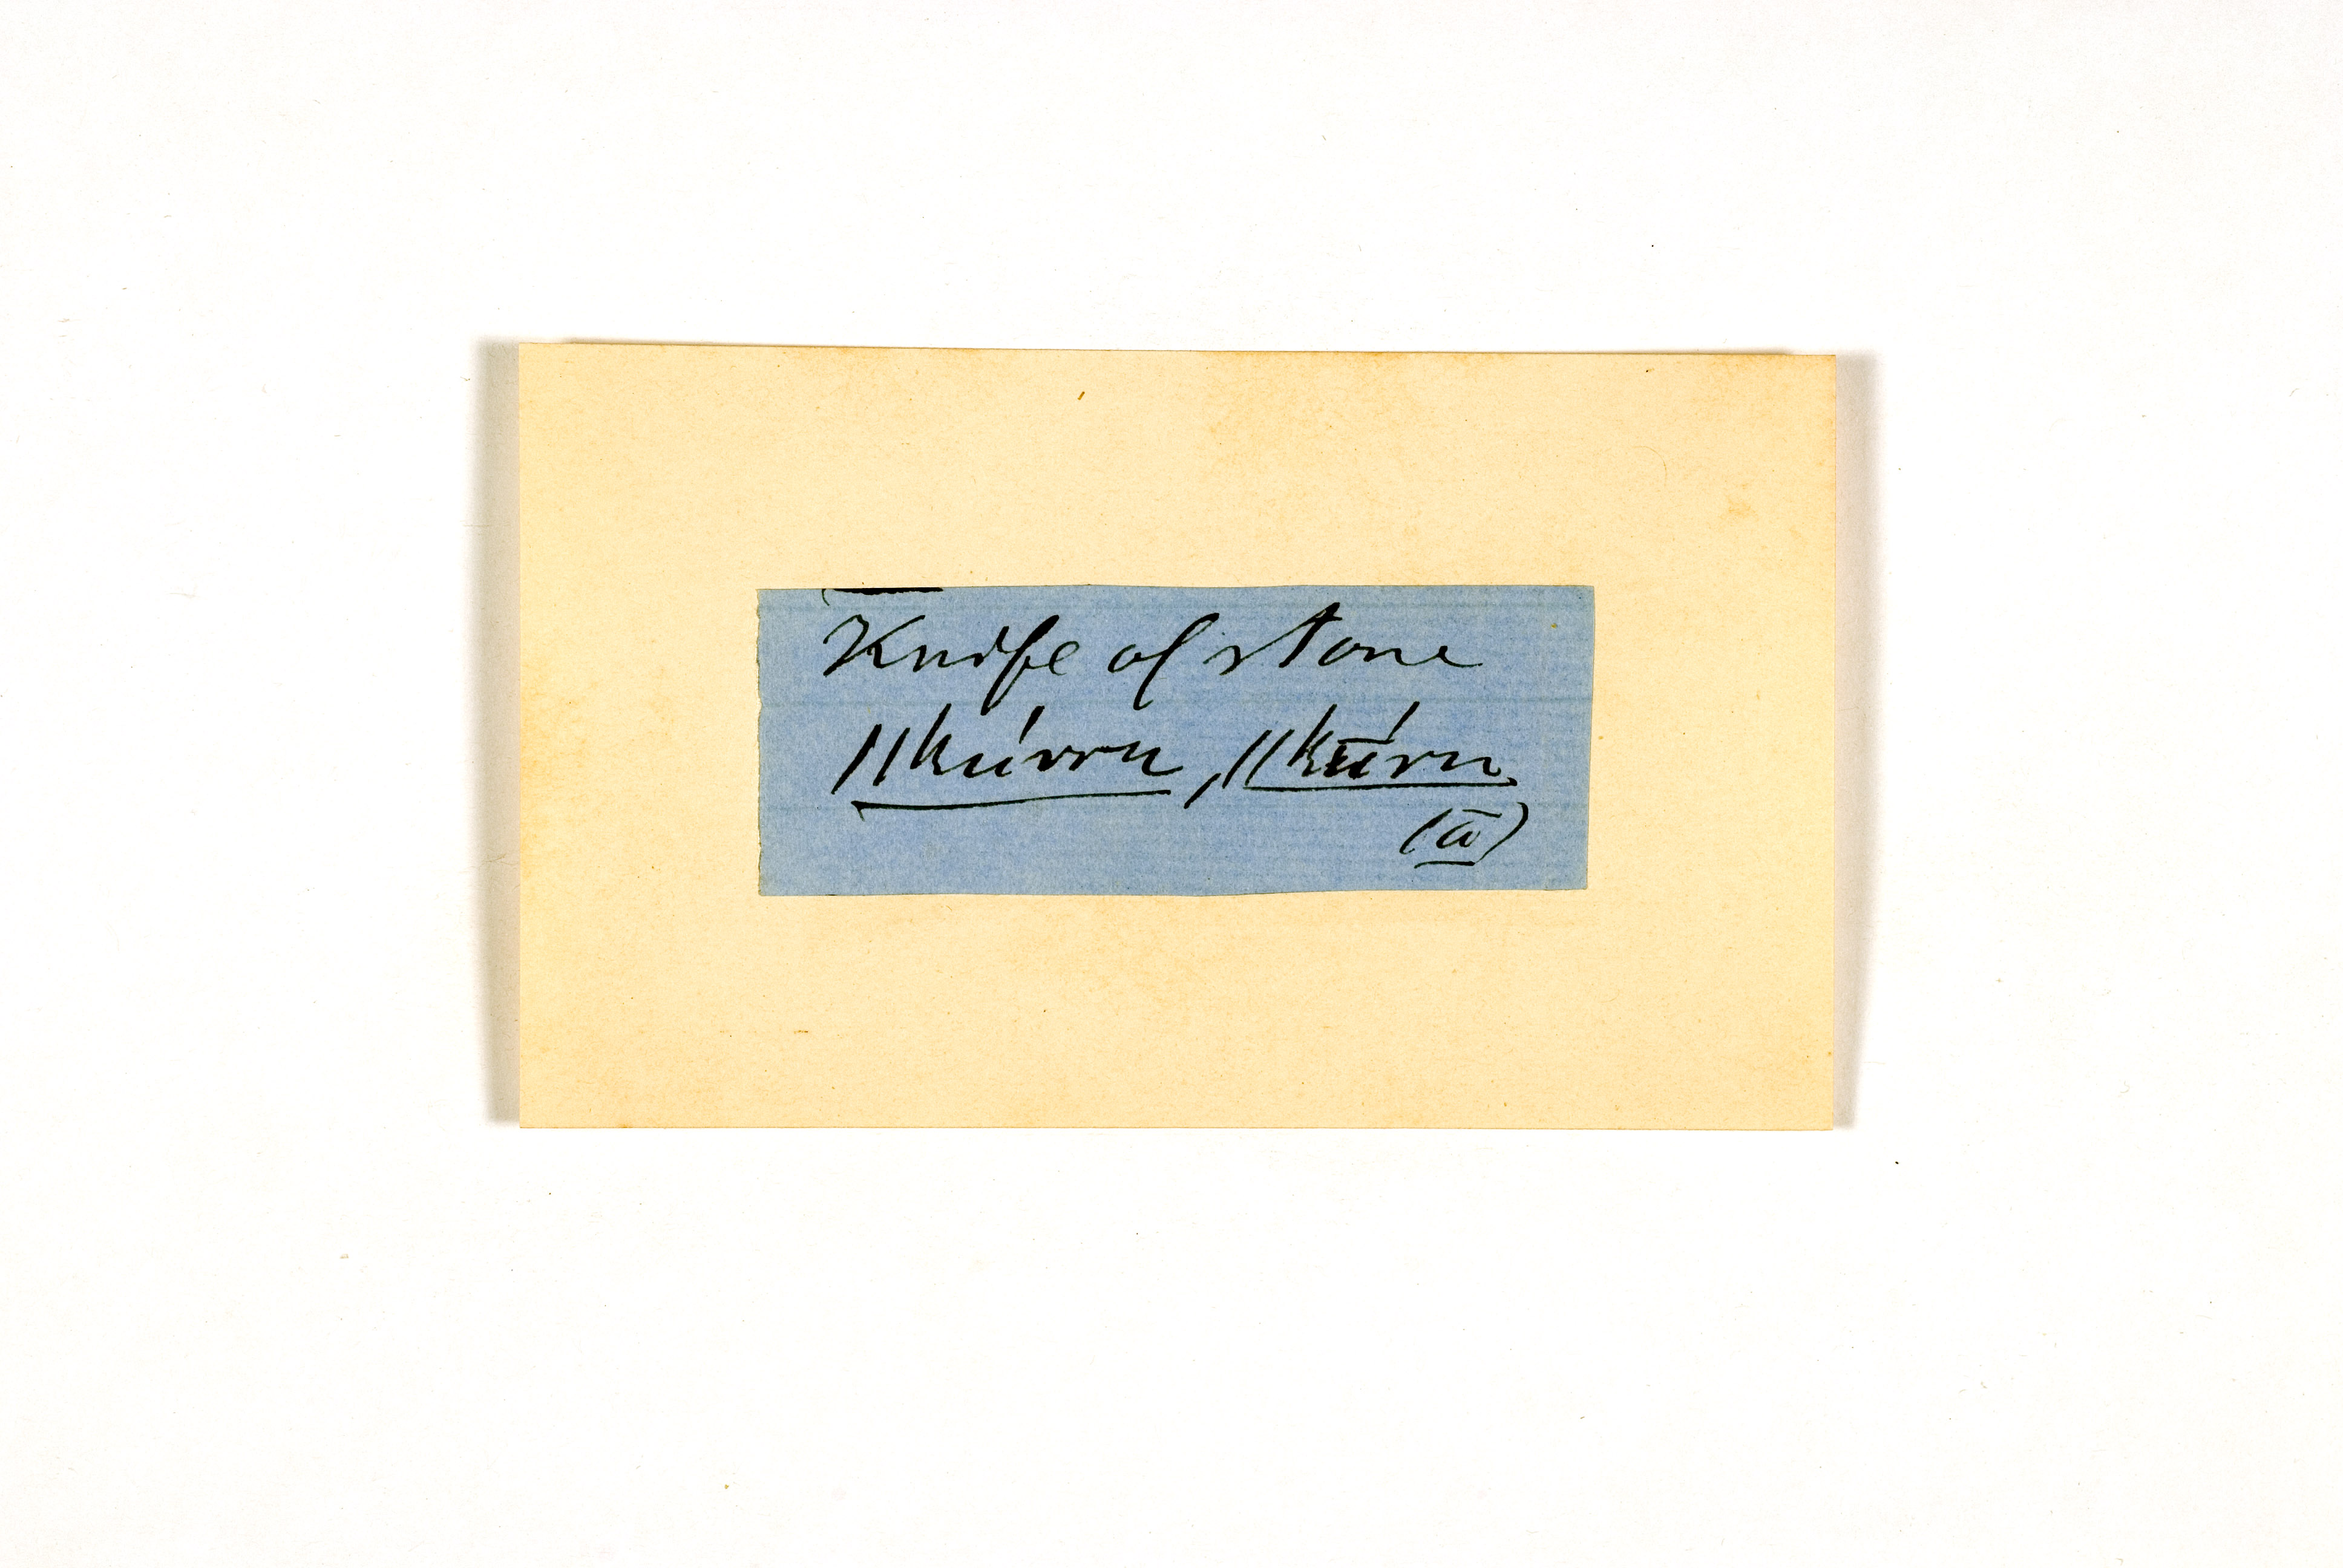 Knife of stone
ǁkúrru, ǁkūŕru
(ū)